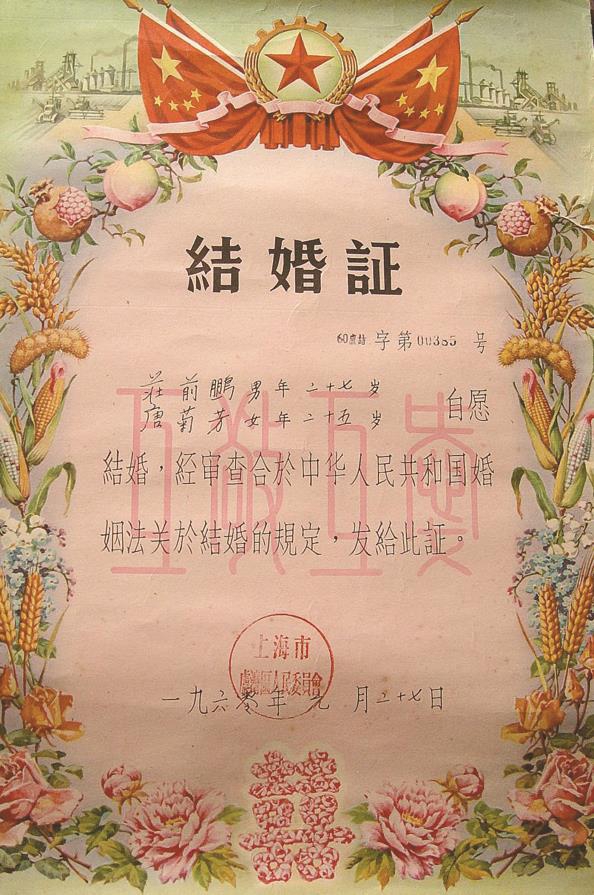 結婚証
60盧結 字第00385号
莊前鵬 男 年二十七岁
唐菊芳 女 年二十五岁 自愿
結婚，經审查合於中华人民共和国婚
姻法关於結婚的規定，发給此証。
互敬互愛
上海市
盧灣區人民委員會
一九六零年元月二十七日
囍